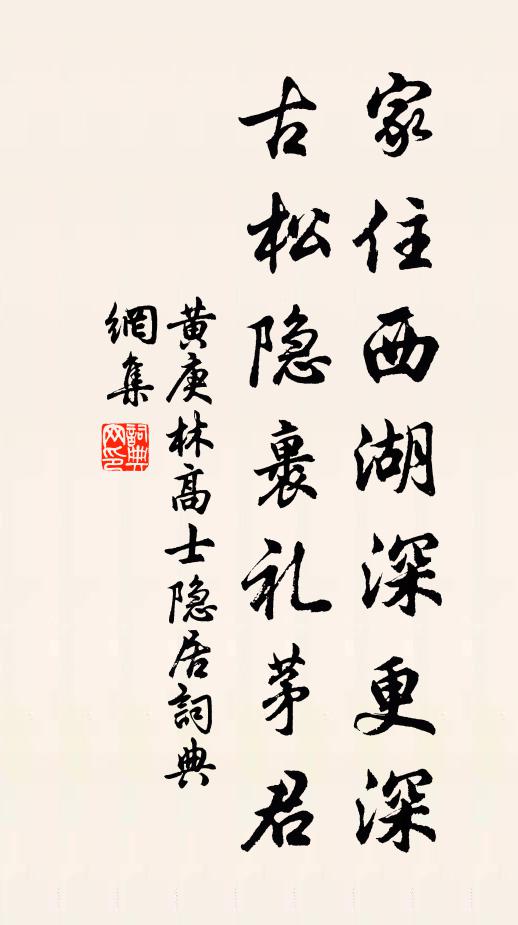 家住西湖深更深
古松隐裹礼茅君
黄庚林高士隐居詞典
網集
詞典
网印